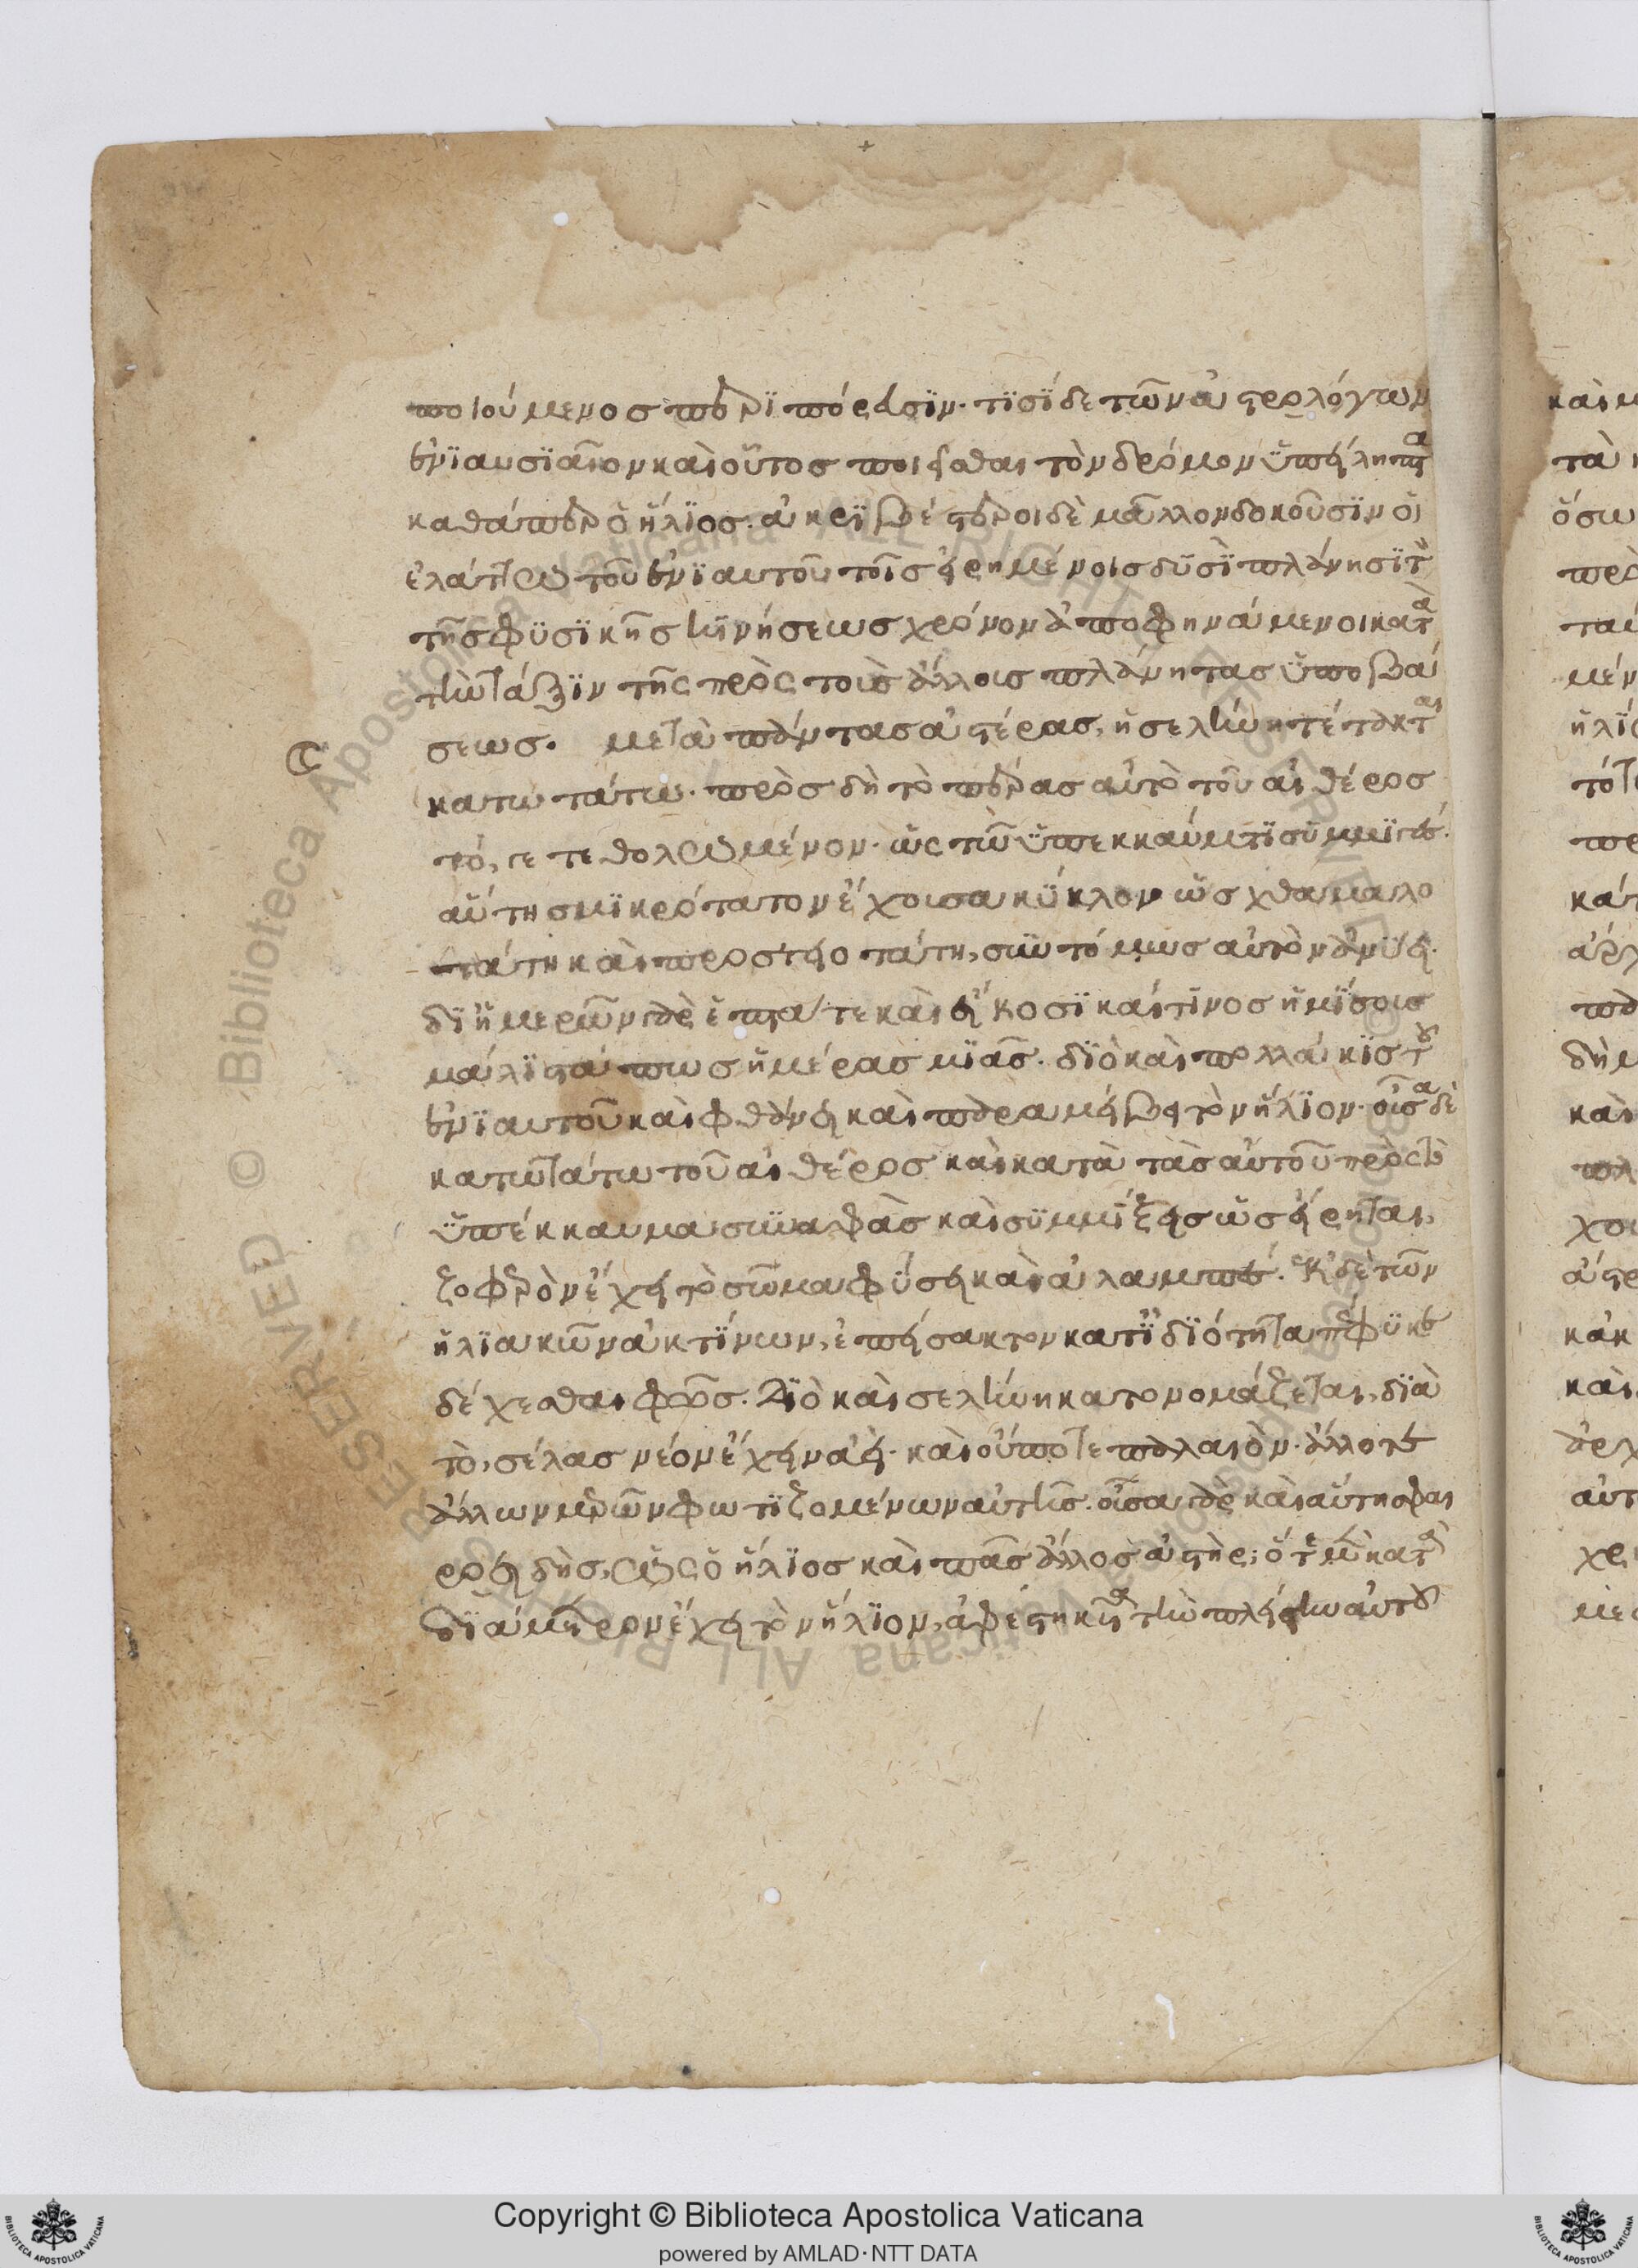 ποιούμενος περιπόρευσιν. τισὶ δὲ τῶν ἀστρολόγων
ἐνιαυσιαῖον καὶ οὗτος ποιεῖσθαι τὸν δρόμον ὑπείληπται
καθάπερ ὁ ἥλιος. ἀκριβέστεροι δὲ μᾶλλον δοκοῦσιν οἱ
ἐλάττω τοῦ ἐνιαυτοῦ τοῖς εἰρημένοις δυσὶ πλάνησι τὸν
τῆς φυσικῆς κινήσεως χρόνον ἀποφηνάμενοι κατὰ
τὴν τάξιν τῆς πρὸς τοὺς ἄλλους πλάνητας ὑποβά
σεως. μετὰ πάντας ἀστέρας, ἡ σελήνη τέτακται
κατωτάτω. πρὸς δὴ τὸ πέρας αὐτὸ τοῦ αἰθέρος
τό, τε τεθολωμένον. ὡς τῶ ὑπεκκαύματι συμμιγές.
αὕτη σμικρότατον ἔχουσα κύκλον ὡς χθαμαλω
τάτη καὶ προσγειοτάτη, συντόμως αὐτὸν ἀνύει.
δι ἡμερῶν γὰρ ἑπτά τε καὶ εἴκοσι καί τινος ἡμίσους
μάλιστά πως ἡμέρας μιᾶς. διὸ καὶ πολλάκις τοῦ
ἐνιαυτοῦ καὶ φθάνει καὶ παραμείβει τὸν ἥλιον. οὖσα δὲ
κατωτάτω τοῦ αἰθέρος καὶ κατὰ τὰς αὐτοῦ πρὸς τὸ
ὑπέκκαυμα συναφὰς καὶ συμμίξεις ὡς εἴρηται,
ζοφερὸν ἔχει τὸ σῶμα φύσει καὶ ἀλαμπές. ἐκ δὲ τῶν
ἡλιακῶν ἀκτίνων, ἐπείσακτον κατ ἰδιότητα πέφυκε
δέχεσθαι φῶς. Διὸ καὶ σελήνη κατονομάζεται, διὰ
τὸ, σέλας νέον ἔχειν ἀεί. καὶ οὔποτε παλαιὸν. ἄλλοτε
ἄλλων μερῶν φωτιζομένων αὐτῆς. οὖσα γὰρ καὶ αὕτη σφαι
ροειδὴς, ὡς ὁ ἥλιος καὶ πᾶς ἄλλος ἀστήρ, ὅτε μὲν κατὰ
διάμετρον ἔχει τὸν ἥλιον, ἀφέστηκε τὴν πλείστην αὐτοῦ
Copyright © Biblioteca Apostolica Vaticana
powered by AMLAD·NTT DATA